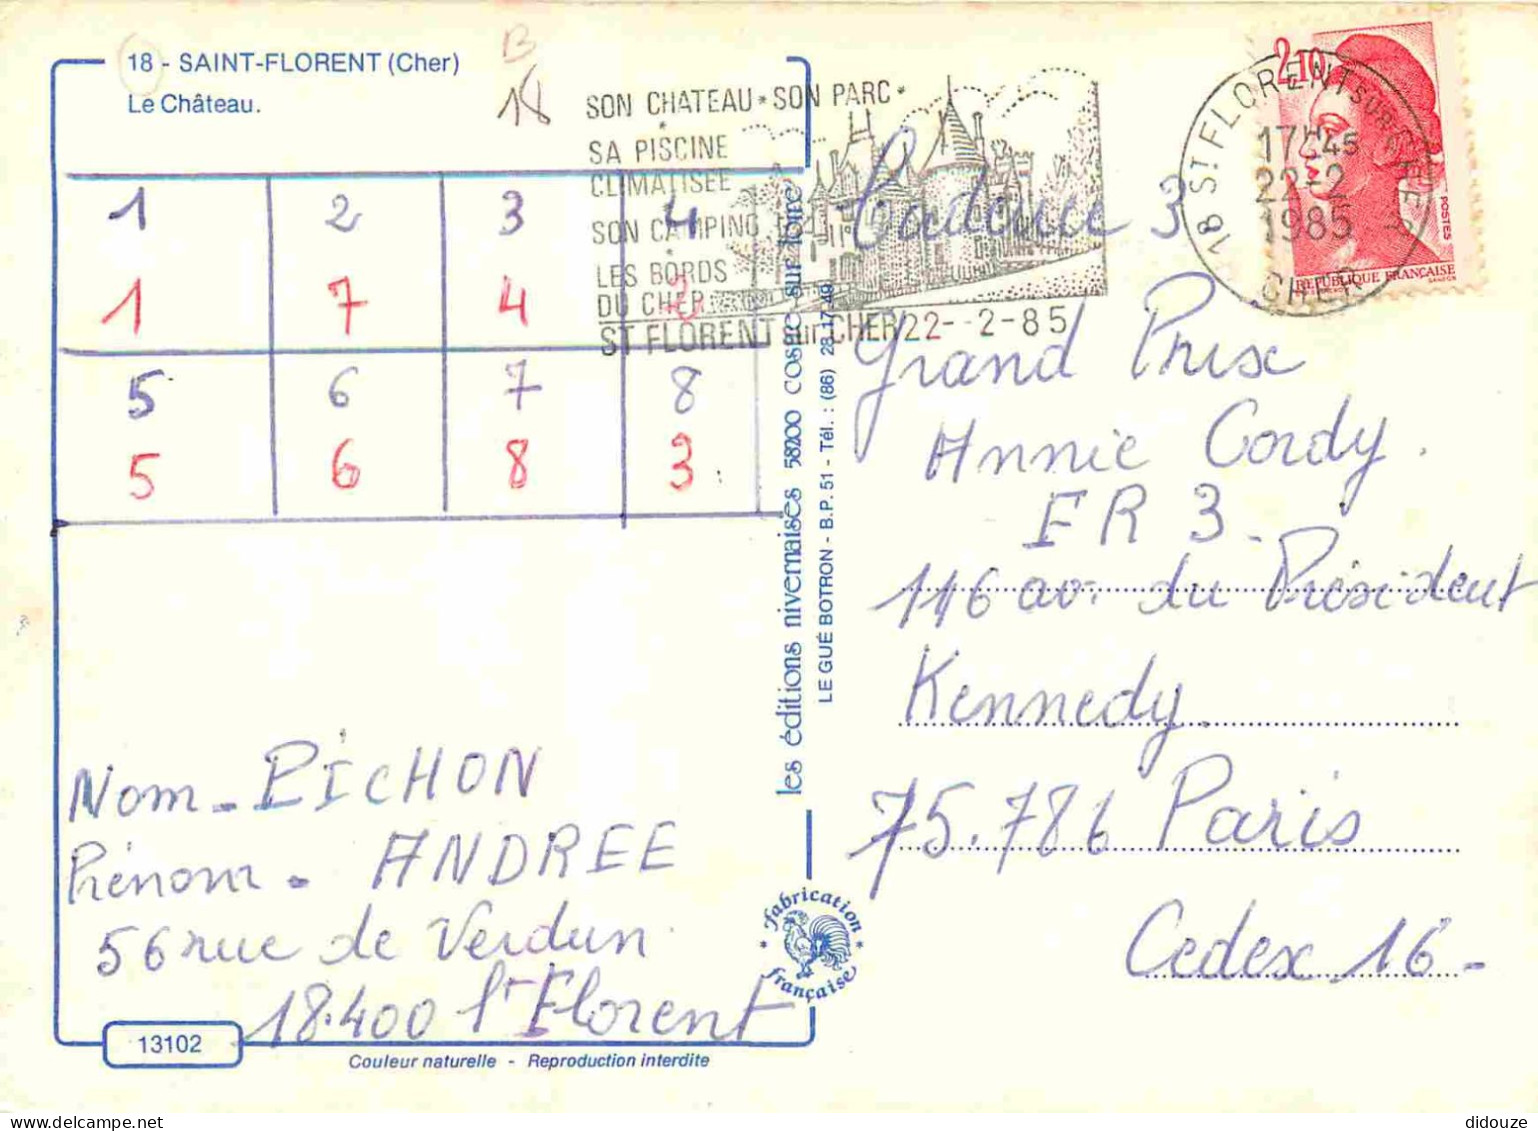 18 - SAINT-FLORENT (Cher)
Le Château.
B
18
1 2 3 4
1 7 4 2
5 6 7 8
5 6 8 3
Nom - PICHON
Prénom - ANDREE
56 rue de Verdun
18.400 St Florent
13102
Couleur naturelle - Reproduction interdite
les éditions nivernaises 58200 cosne sur loire
LE GUÉ BOTRON - B.P. 51 - Tél. : (86) 28.17.49
fabrication
française
SON CHATEAU * SON PARC *
SA PISCINE
CLIMATISEE
SON CAMPING
LES BORDS
DU CHER
ST FLORENT sur CHER 22- -2-85
18 ST FLORENT SUR CHER
17H45
22-2
1985
CHER
2,10
POSTES
REPUBLIQUE FRANÇAISE
GANDON
Cadence 3
Grand Prix
Annie Cordy.
FR 3.
116 av. du Président
Kennedy.
75.786 Paris
Cedex 16 -
didouze